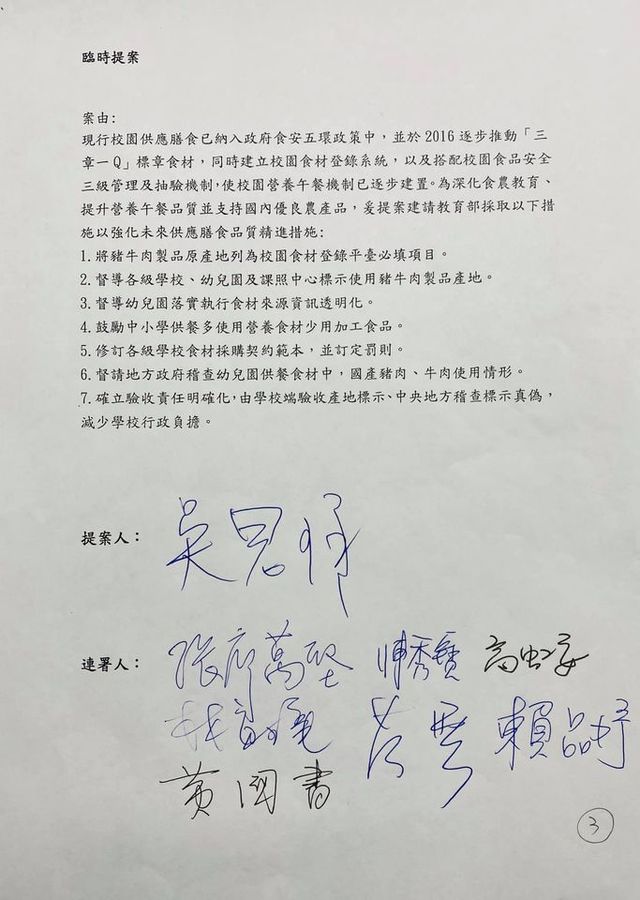 臨時提案
案由:
現行校園供應膳食已納入政府食安五環政策中，並於 2016 逐步推動「三
章一 Q」標章食材，同時建立校園食材登錄系統，以及搭配校園食品安全
三級管理及抽驗機制，使校園營養午餐機制已逐步建置。為深化食農教育、
提升營養午餐品質並支持國內優良農產品，爰提案建請教育部採取以下措
施以強化未來供應膳食品質精進措施:
1.將豬牛肉製品原產地列為校園食材登錄平臺必填項目。
2.督導各級學校、幼兒園及課照中心標示使用豬牛肉製品產地。
3.督導幼兒園落實執行食材來源資訊透明化。
4.鼓勵中小學供餐多使用營養食材少用加工食品。
5.修訂各級學校食材採購契約範本，並訂定罰則。
6.督請地方政府稽查幼兒園供餐食材中，國產豬肉、牛肉使用情形。
7.確立驗收責任明確化，由學校端驗收產地標示、中央地方稽查標示真偽，
減少學校行政負擔。
提案人： 吳思瑤
連署人： 張廖萬堅 陳秀寳 高虹安
林宜瑾 范雲 賴品妤
黃國書
3